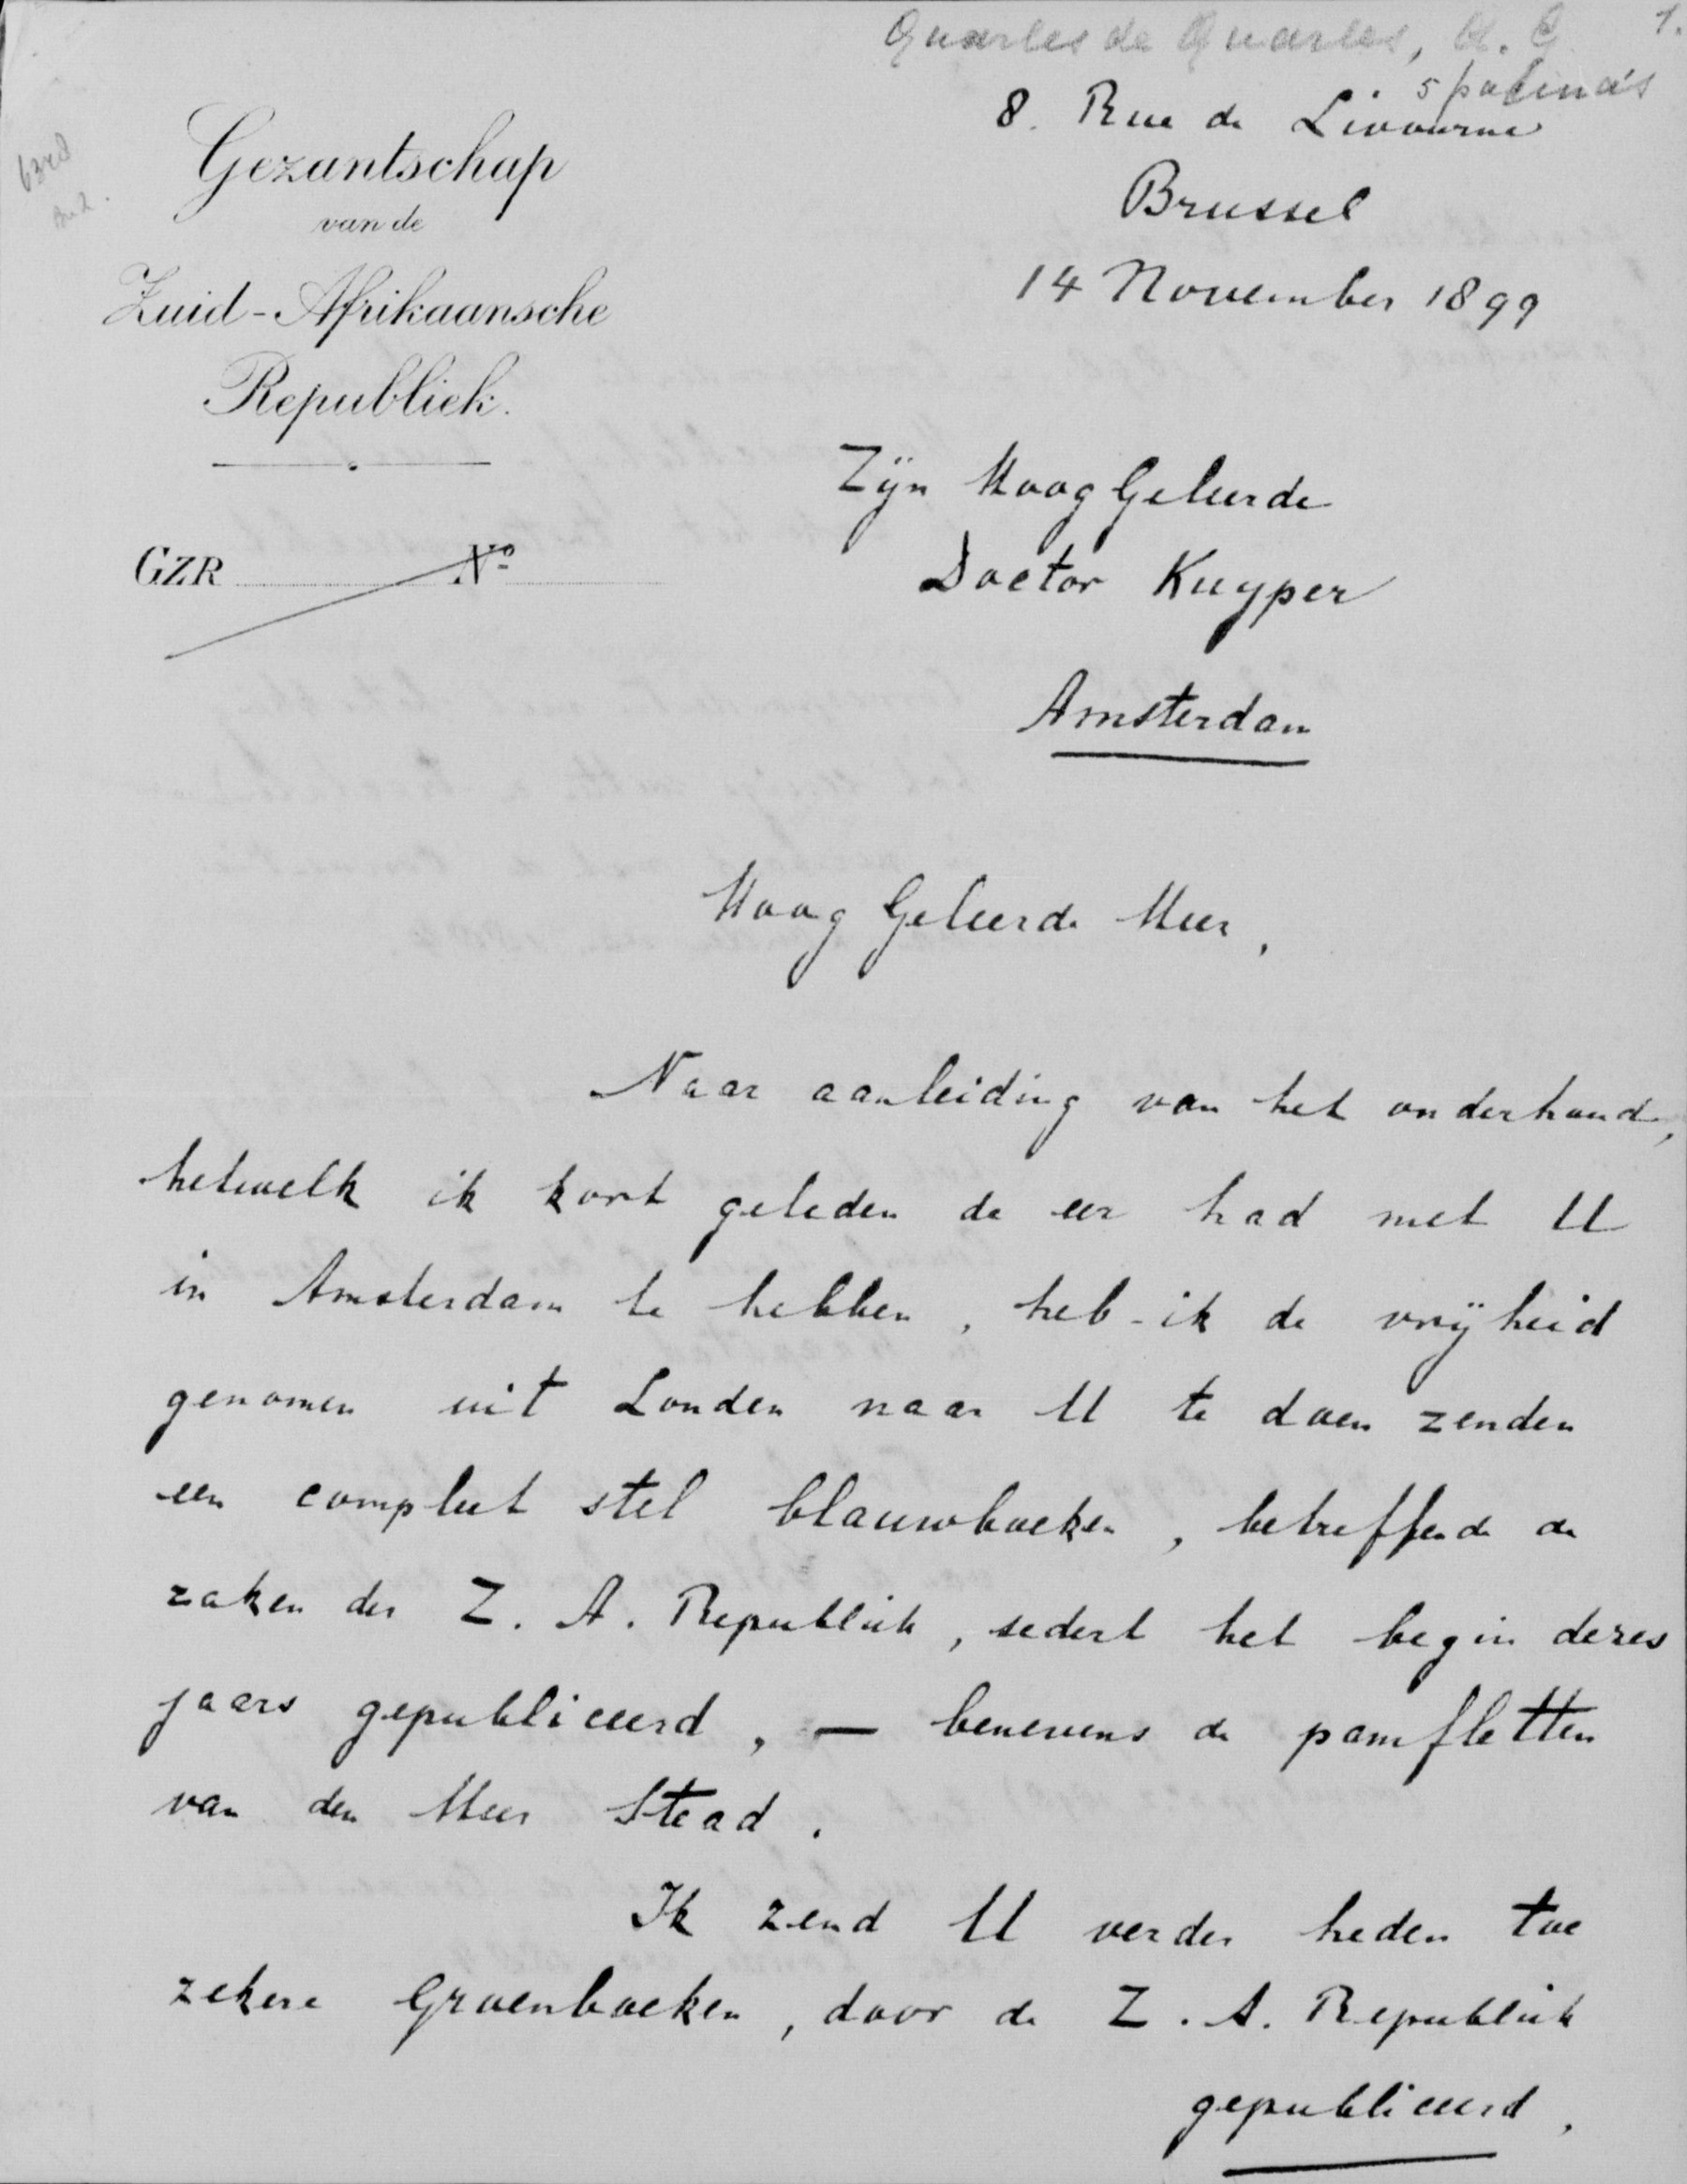 Quarles de Quarles, H. G 1.
5 pagina's
6328
Gezantschap
van de
Zuid-Afrikaansche
Republiek.
GZR No
8. Rue de Livourne
Brussel
14 November 1899
Zijn Hoog Geleerde
Doctor Kuyper
Amsterdam
Hoog Geleerde Heer,
Naar aanleiding van het onderhoud,
hetwelk ik kort geleden de eer had met U
in Amsterdam te hebben, heb-ik de vrijheid
genomen uit Londen naar U te doen zenden
een compleet stel blauwboeken, betreffende de
zaken der Z. A. Republiek, sedert het begin dezes
jaars gepubliceerd, — benevens de pamfletten
van den Heer Stead.
Ik zend U verder heden toe
zekere Groenboeken, door de Z. A. Republiek
gepubliceerd,